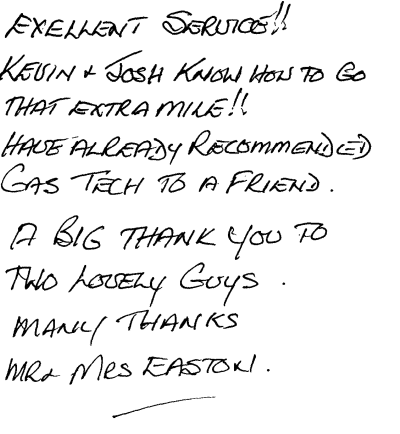 EXELLENT SERVICE!!
KEVIN & JOSH KNOW HOW TO GO
THAT EXTRA MILE!!
HAVE ALREADY RECOMMENDED
GAS TECH TO A FRIEND.
A BIG THANK YOU TO
TWO LOVELY GUYS.
MANY THANKS
MR & MRS EASTON.